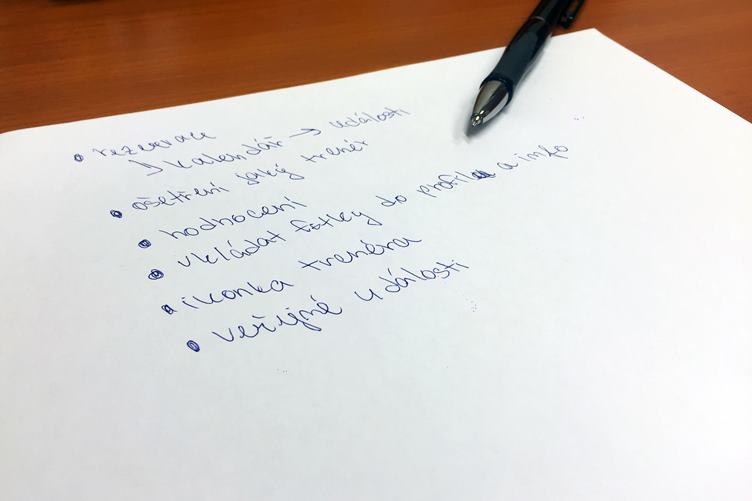 • rezervace
↳ kalendář → události
• ošetření jaký trenér
• hodnocení
• vkládat fotky do profilu a info
• ikonka trenéra
• veřejné události